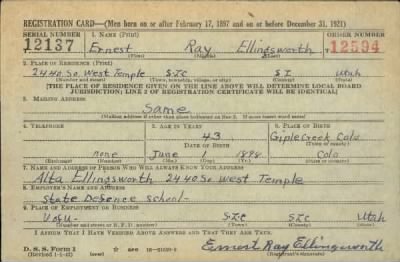 REGISTRATION CARD—(Men born on or after February 17, 1897 and on or before December 31, 1921)
SERIAL NUMBER 1. NAME (Print) ORDER NUMBER
12137 Ernest Ray Ellingsworth 12594
(First) (Middle) (Last)
2. PLACE OF RESIDENCE (Print)
2440 So. West Temple S.L.C S.L Utah
(Number and street) (Town, township, village, or city) (County) (State)
[THE PLACE OF RESIDENCE GIVEN ON THE LINE ABOVE WILL DETERMINE LOCAL BOARD
JURISDICTION; LINE 2 OF REGISTRATION CERTIFICATE WILL BE IDENTICAL]
3. MAILING ADDRESS
Same
[Mailing address if other than place indicated on line 2. If same insert word same]
4. TELEPHONE 5. AGE IN YEARS 6. PLACE OF BIRTH
43 Criple Creek Colo
DATE OF BIRTH (Town or county)
none June 1 1898 Colo
(Exchange) (Number) (Mo.) (Day) (Yr.) (State or country)
7. NAME AND ADDRESS OF PERSON WHO WILL ALWAYS KNOW YOUR ADDRESS
Alta Ellingsworth 2440 So West Temple
8. EMPLOYER'S NAME AND ADDRESS
State Defence school-
9. PLACE OF EMPLOYMENT OR BUSINESS
S.L.C S.L.C Utah
(Number and street or R. F. D. number) (Town) (County) (State)
I AFFIRM THAT I HAVE VERIFIED ABOVE ANSWERS AND THAT THEY ARE TRUE.
D. S. S. Form 1
(Revised 1-1-42) (over) Ernest Ray Ellingsworth
(Registrant's signature)